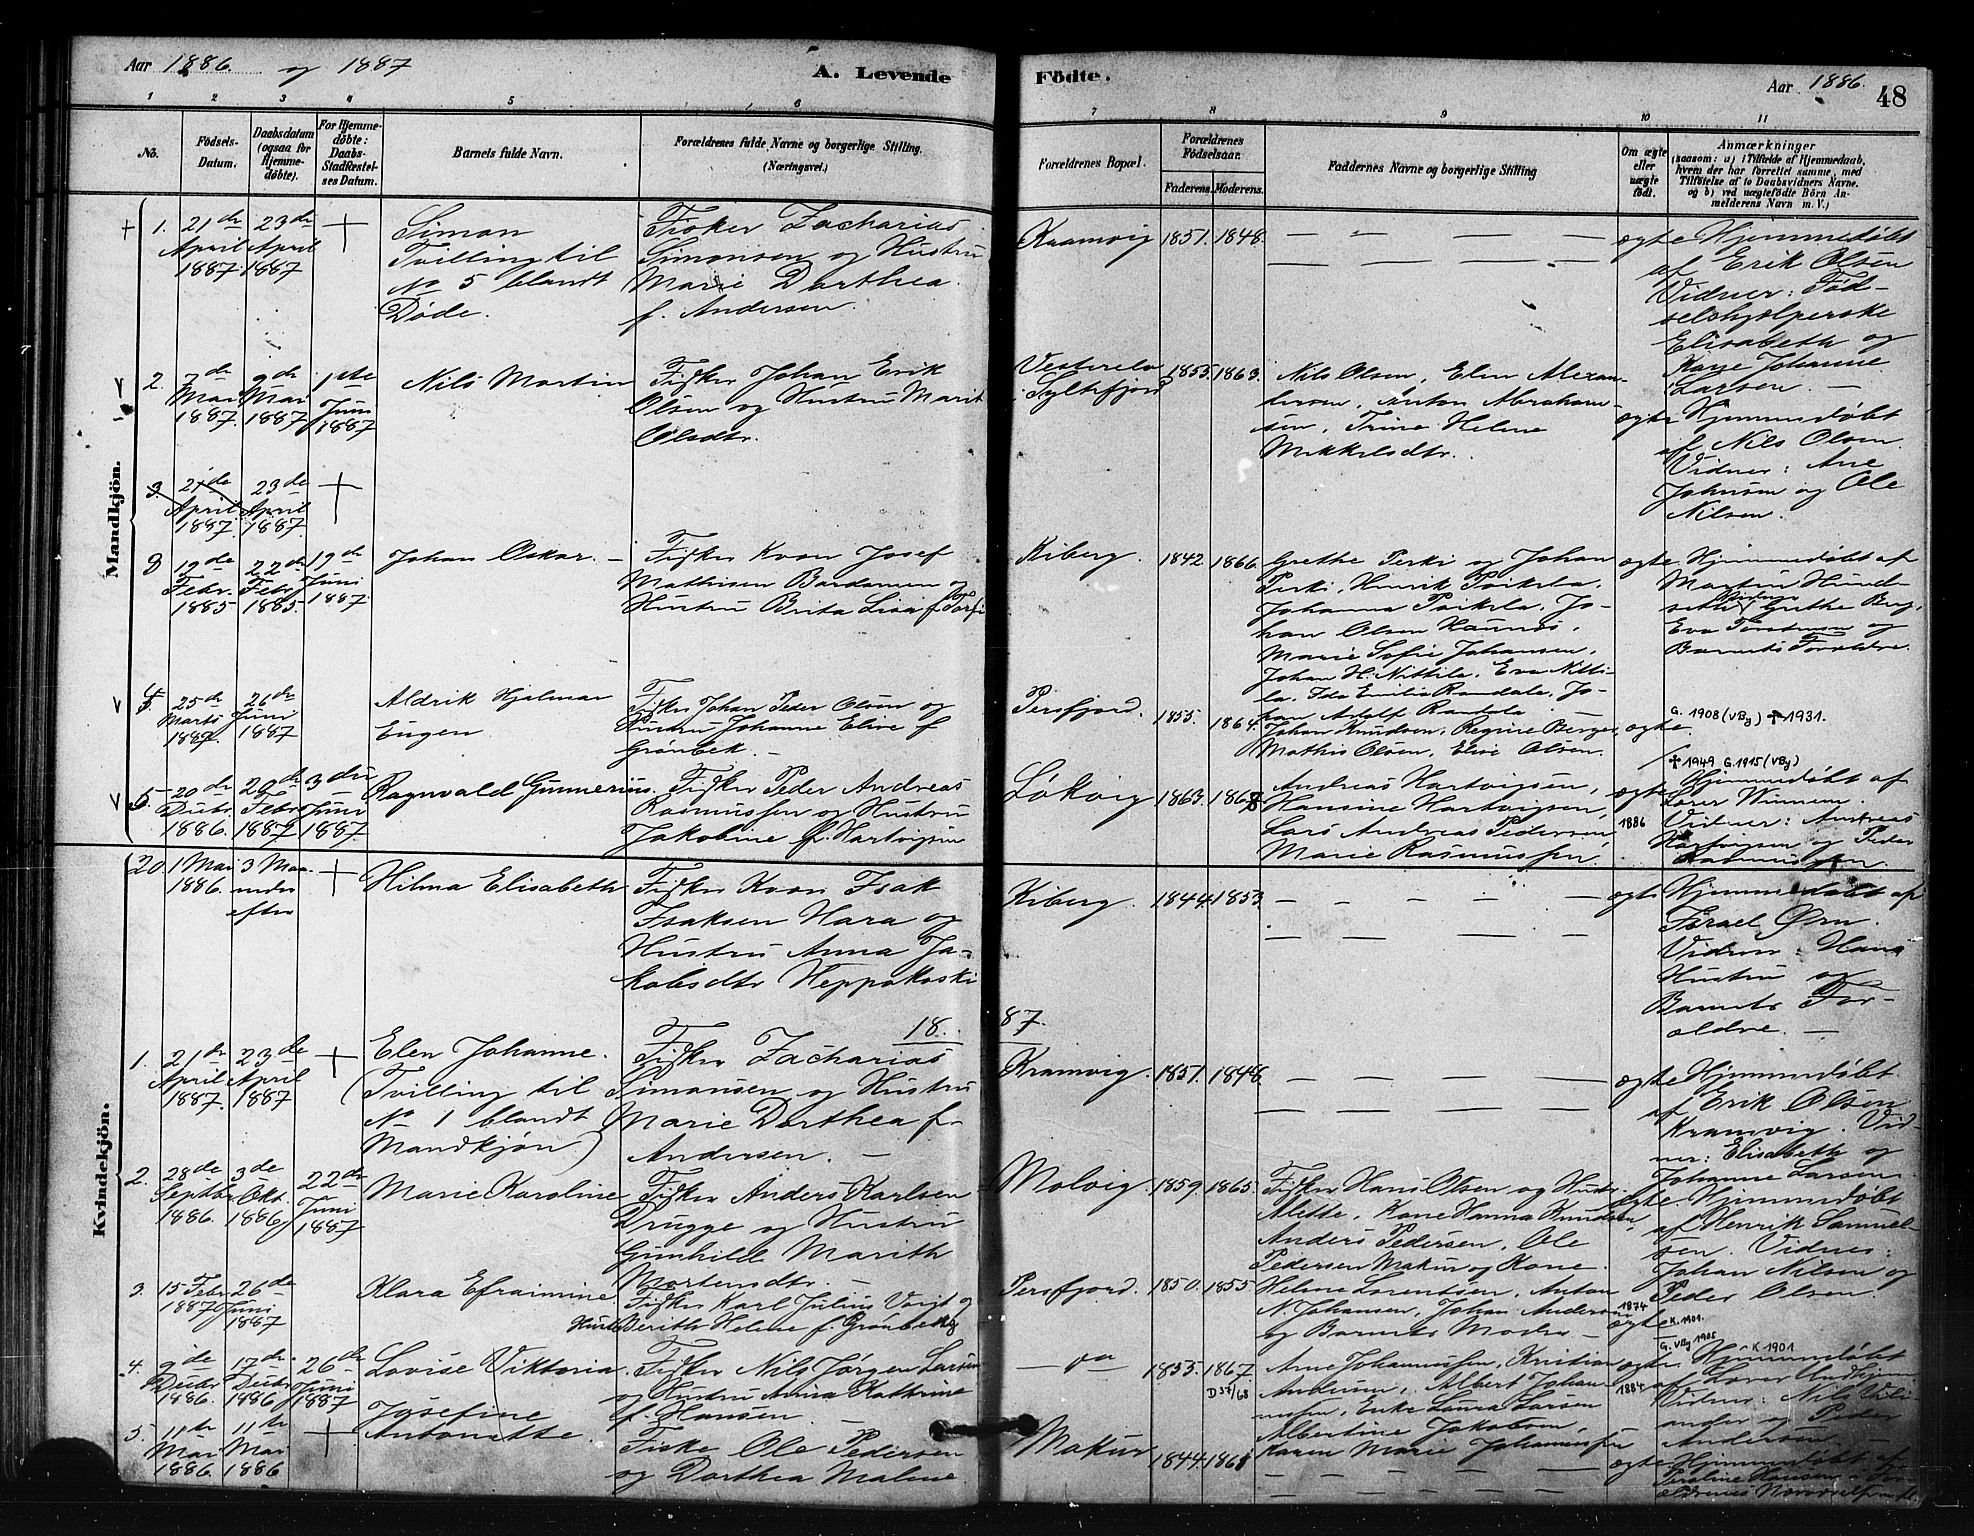 Aar 1886. og 1887
A. Levende
Födte.
Aar 1886.
48
1 2 3 4 5 6 7 8 9 10 11
No.
Födsels-
Datum.
Daabsdatum
(ogsaa for
Hjemme-
døbte).
For Hjemme-
døbte:
Daabs-
Stadfæstel-
ses Datum.
Barnets fulde Navn.
Forældrenes fulde Navne og borgerlige Stilling.
(Næringsvei.)
Forældrenes Bopæl.
Forældrenes
Födselsaar.
Faderens.
Moderens.
Faddernes Navne og borgerlige Stilling
Om ægte
eller
uægte
födt.
Anmærkninger
(saasom: a) i Tilfælde af Hjemmedaab,
hvem der har forrettet samme, med
Tilföielse af to Daabsvidners Navne,
og b) ved uægtefödte Börn An-
melderens Navn m. V.)
Mandkjön.
1.
21de
April
1887
23de
April
1887
Simon
Tvilling til
No 5 blandt
Døde.
Fisker Zacharias
Simonsen og Hustru
Marie Dorthea
f. Andersen.
Kramvig
1851.
1848.
ægte
Hjemmedøbt
af Erik Olsen
Vidner: Fød-
selshjælperske
Elisabeth og
Kone Johanne
Larsen. —
2.
7de
Mai
1887.
9de
Mai
1887
1ste
Juni
1887
Nils Martin
Fisker Johan Erik
Olsen og Hustru Marit
Olsdtr.
Vesterelv
i Syltefjord
1855.
1863.
Nils Olsen, Elen Alexan-
dersen, Anton Abraham-
sen, Trine Helene
Mikkelsdtr.
ægte
Hjemmedøbt
af Nils Olsen.
Vidner: Ane
Johnsen og Ole
Nilsen.
3.
21de
April
1887.
23de
April
1887.
3
19de
Febr.
1885
22de
Febr.
1885
19de
Juni
1887
Johan Oskar. —
Fisker Kvæn Josef
Mathisen Bardamen og
Hustru Brita Lisa f.
Kiberg.
1842
1866.
Grethe Perki og Johan
Perki, Henrik Poikela,
Johanna Poikela, Jo-
han Olsen
Marie Sofie Johansen,
Johan H. Nittila, Eva Nitti-
la, Ida Emilia Randala, Jo-
han Adolf Randala
ægte
Hjemmedøbt af
Martin Hund-
Grethe Berg,
Eva og
Barnets Forældre.
4.
25de
Marts
1887
26de
Juni
1887
Aldrik Hjelmar
Eugen
Fisker Johan Peder Olsen og
Hustru Johanne Elive f.
Grønbek. —
Persfjord.
1855.
1864.
Johan Knudsen, Regine Berger,
Mathis Olsen, Elise Olsen.
ægte
G. 1908 (VBy) ✝ 1931.
5.
20de
Decbr.
1886.
20de
Febr.
1887
3die
Juni
1887
Ragnvald Gunnerius.
Fisker Peder Andreas
Rasmussen og Hustru
Jakobine f. Hartvigsen
Løkvig
1863.
1868
Andreas Hartvigsen,
Hansine Hartvigsen,
Lars Andreas Pedersen,
Marie Rasmussen
ægte
1886
✝ 1949 G. 1915 (VBy)
Hjemmedøbt af
Vidner: Andreas
Hartvigsen og Peder
Rasmussen
Kvindekjön.
20
1 Mai
1886.
3 Maa-
neder
efter
Hilma Elisabeth
Fisker Kvæn Isak
Isaksen Hara og
Hustru Anna Ja-
kobsdtr Heppokoski
Kiberg.
1844.
1853.
ægte
Hjemmedøbt af
Israel Ørn.
Vidner: Hans
Hustru og
Barnets For-
ældre. —
18 87.
1.
21de
April
1887.
23de
April
1887
Elen Johanne.
(Tvilling til
No 1 blandt
Mandkjøn)
Fisker Zacharias
Simonsen og Hustru
Marie Dorthea f.
Andersen. —
Kramvig.
1851.
1848
ægte
Hjemmedøbt
af Erik Olsen
Kramvig. Vid-
ner: Elisabeth og
Johanne Larsen.
2.
28de
Septbr
1886.
3de
Okt.
1886
22de
Juni
1887
Marie Karoline
Fisker Anders Karlsen
Drugge og Hustru
Gunhild Marith
Mortensdtr. —
Molvig.
1859.
1865.
Fisker Hans Olsen og Hustru
Alette, Kone Hanna Knudsen,
Anders Pedersen, Ole
Pedersen Makur og Kone
ægte.
Hjemmedøbt
af Henrik Samuel-
sen. Vidner:
Johan Nilsen og
Peder Olsen.
3.
15 Febr
1887
26de
Juni
1887
Klara Efraimine
Fisker Karl Julius Voigt og
Hustr. Berith Helene f. Grønbek
Persfjord.
1850.
1855.
Helene Lorentsen, Anton
N. Johansen, Johan Andersen
og Barnets Moder —
1874
ægte
K. 1901.
G. VBy 1905
4.
9de
Decbr
1886.
17de
Decbr
1886
26de
Juni
1887
Lovise Viktoria.
Fisker Nils Jørgen Larsen
og Hustru Anna Kathrine
f. Hansen. —
— do —
1855.
1867
D 37/68
Arne Johannessen, Kristian
Andersen, Albert Johan-
nesen, Enke Laura Larsen
Albertine Jakobsen,
Karen Marie Johannessen
ægte
1884
K 1901
Hjemmedøbt
Vidner: Nils
og Peder
Andersen. —
5.
11te
Mai
1886.
11te
Mai
1886
Josefine
Antonette.
Fisker Ole Pedersen
og Dorthea Malene
Makur
1844.
1861
ægte
Hjemmedøbt af
Hansen i For-
ældrenes